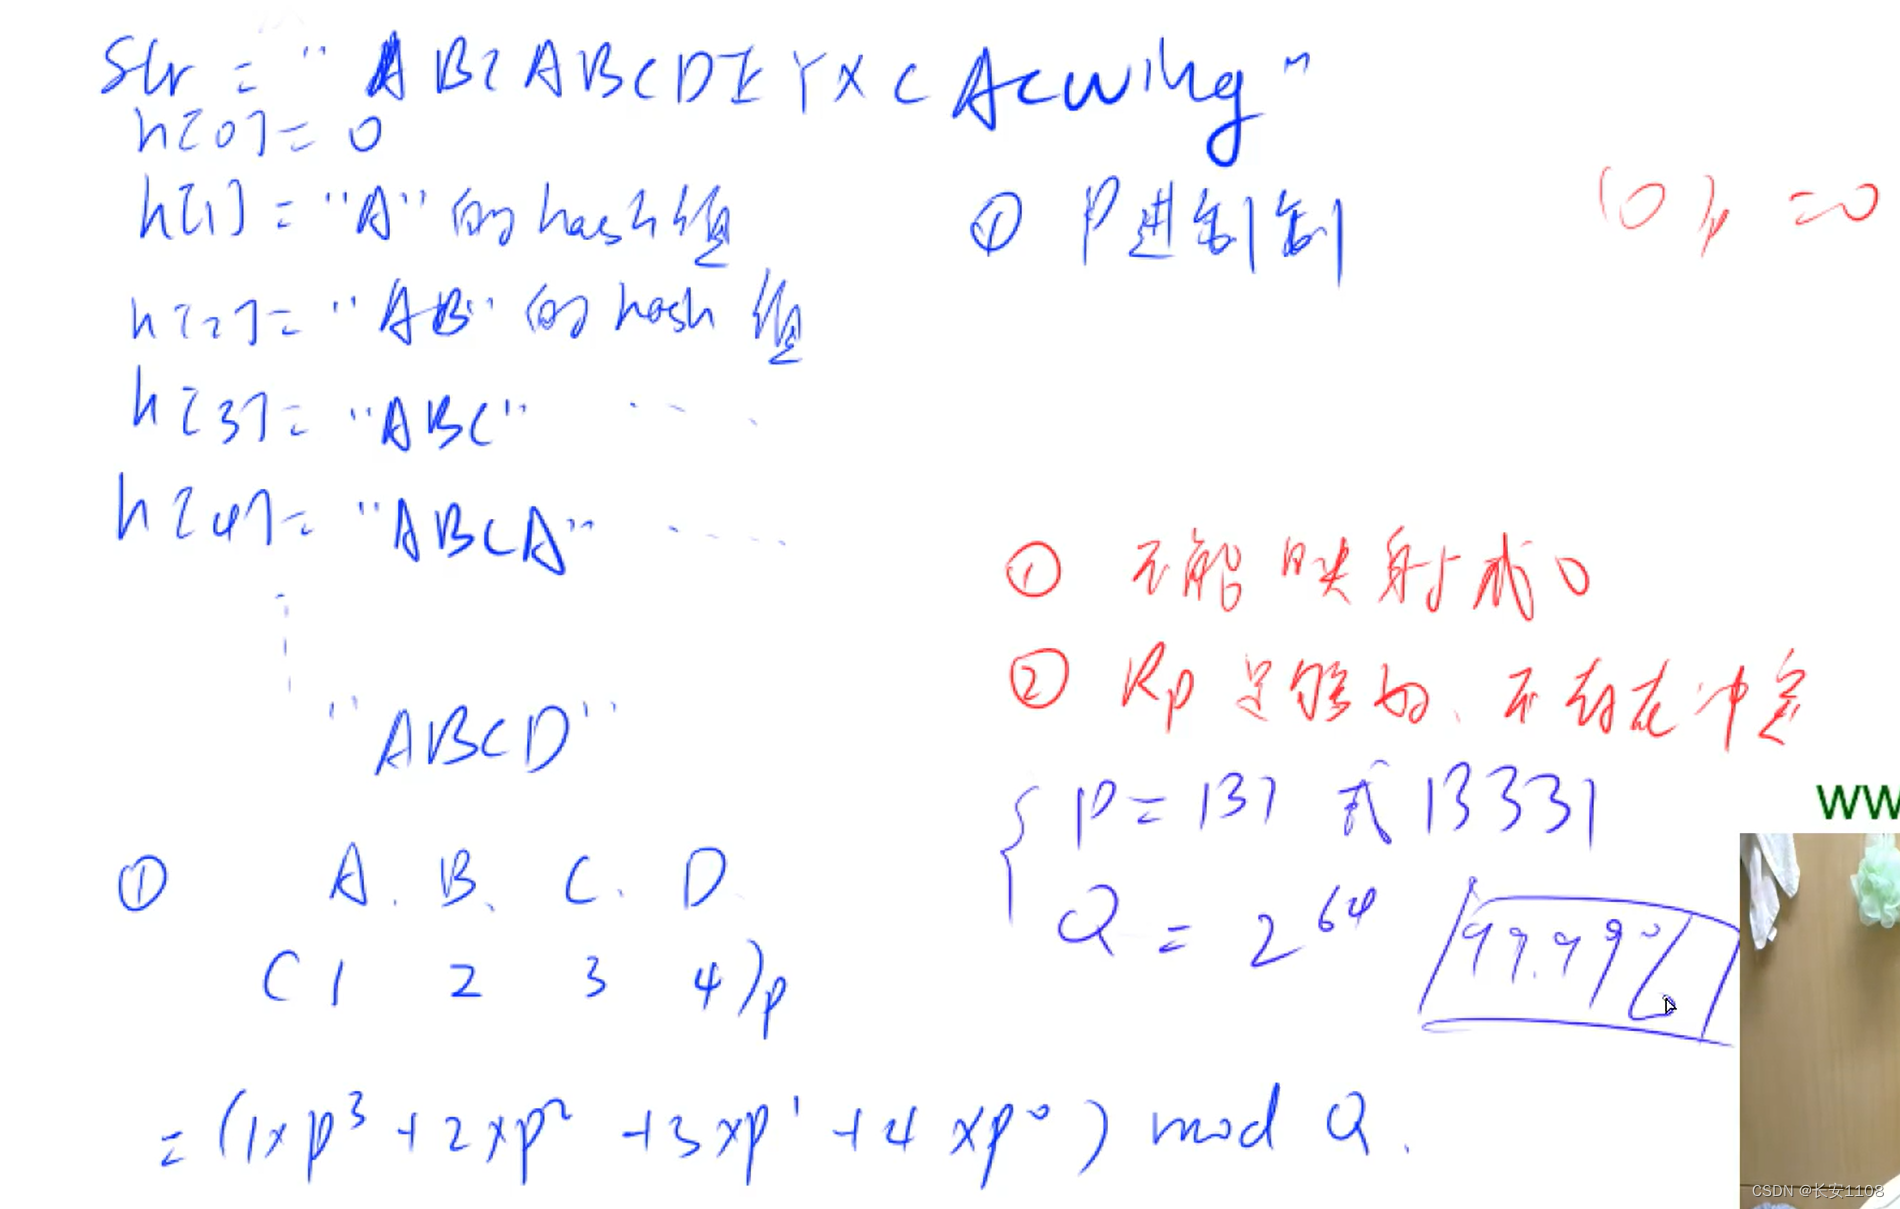 Str = "ABCABCDEYXCAcwing"
h[0] = 0
h[1] = "A" 的 hash值
h[2] = "AB" 的 hash 值
h[3] = "ABC" ....
h[4] = "ABCA" ....
"ABCD"
① A. B、 C. D.
( 1 2 3 4 )p
= (1×p³ + 2×p² + 3×p¹ + 4×p⁰) mod Q.
① P进制
(0)p = 0
① 不能映射成0
② Rp 足够好、不存在冲突
P = 131 或 13331
Q = 2⁶⁴
99.99%
ww
CSDN @长安1108